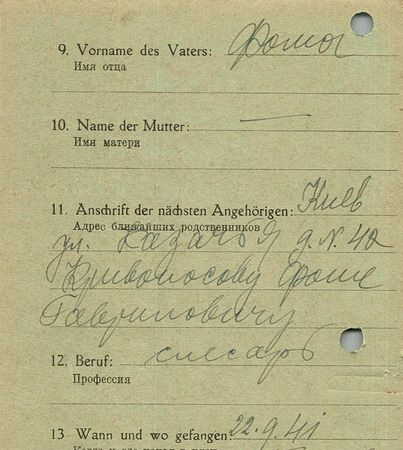 9. Vorname des Vaters: Фома
Имя отца
10. Name der Mutter: —
Имя матери
11. Anschrift der nächsten Angehörigen: Киев
Адрес ближайших родственников
ул. д. N. 42
Кривоносову Фоме
Гавриловичу
12. Beruf: слесарь
Профессия
13 Wann und wo gefangen: 22.9.41